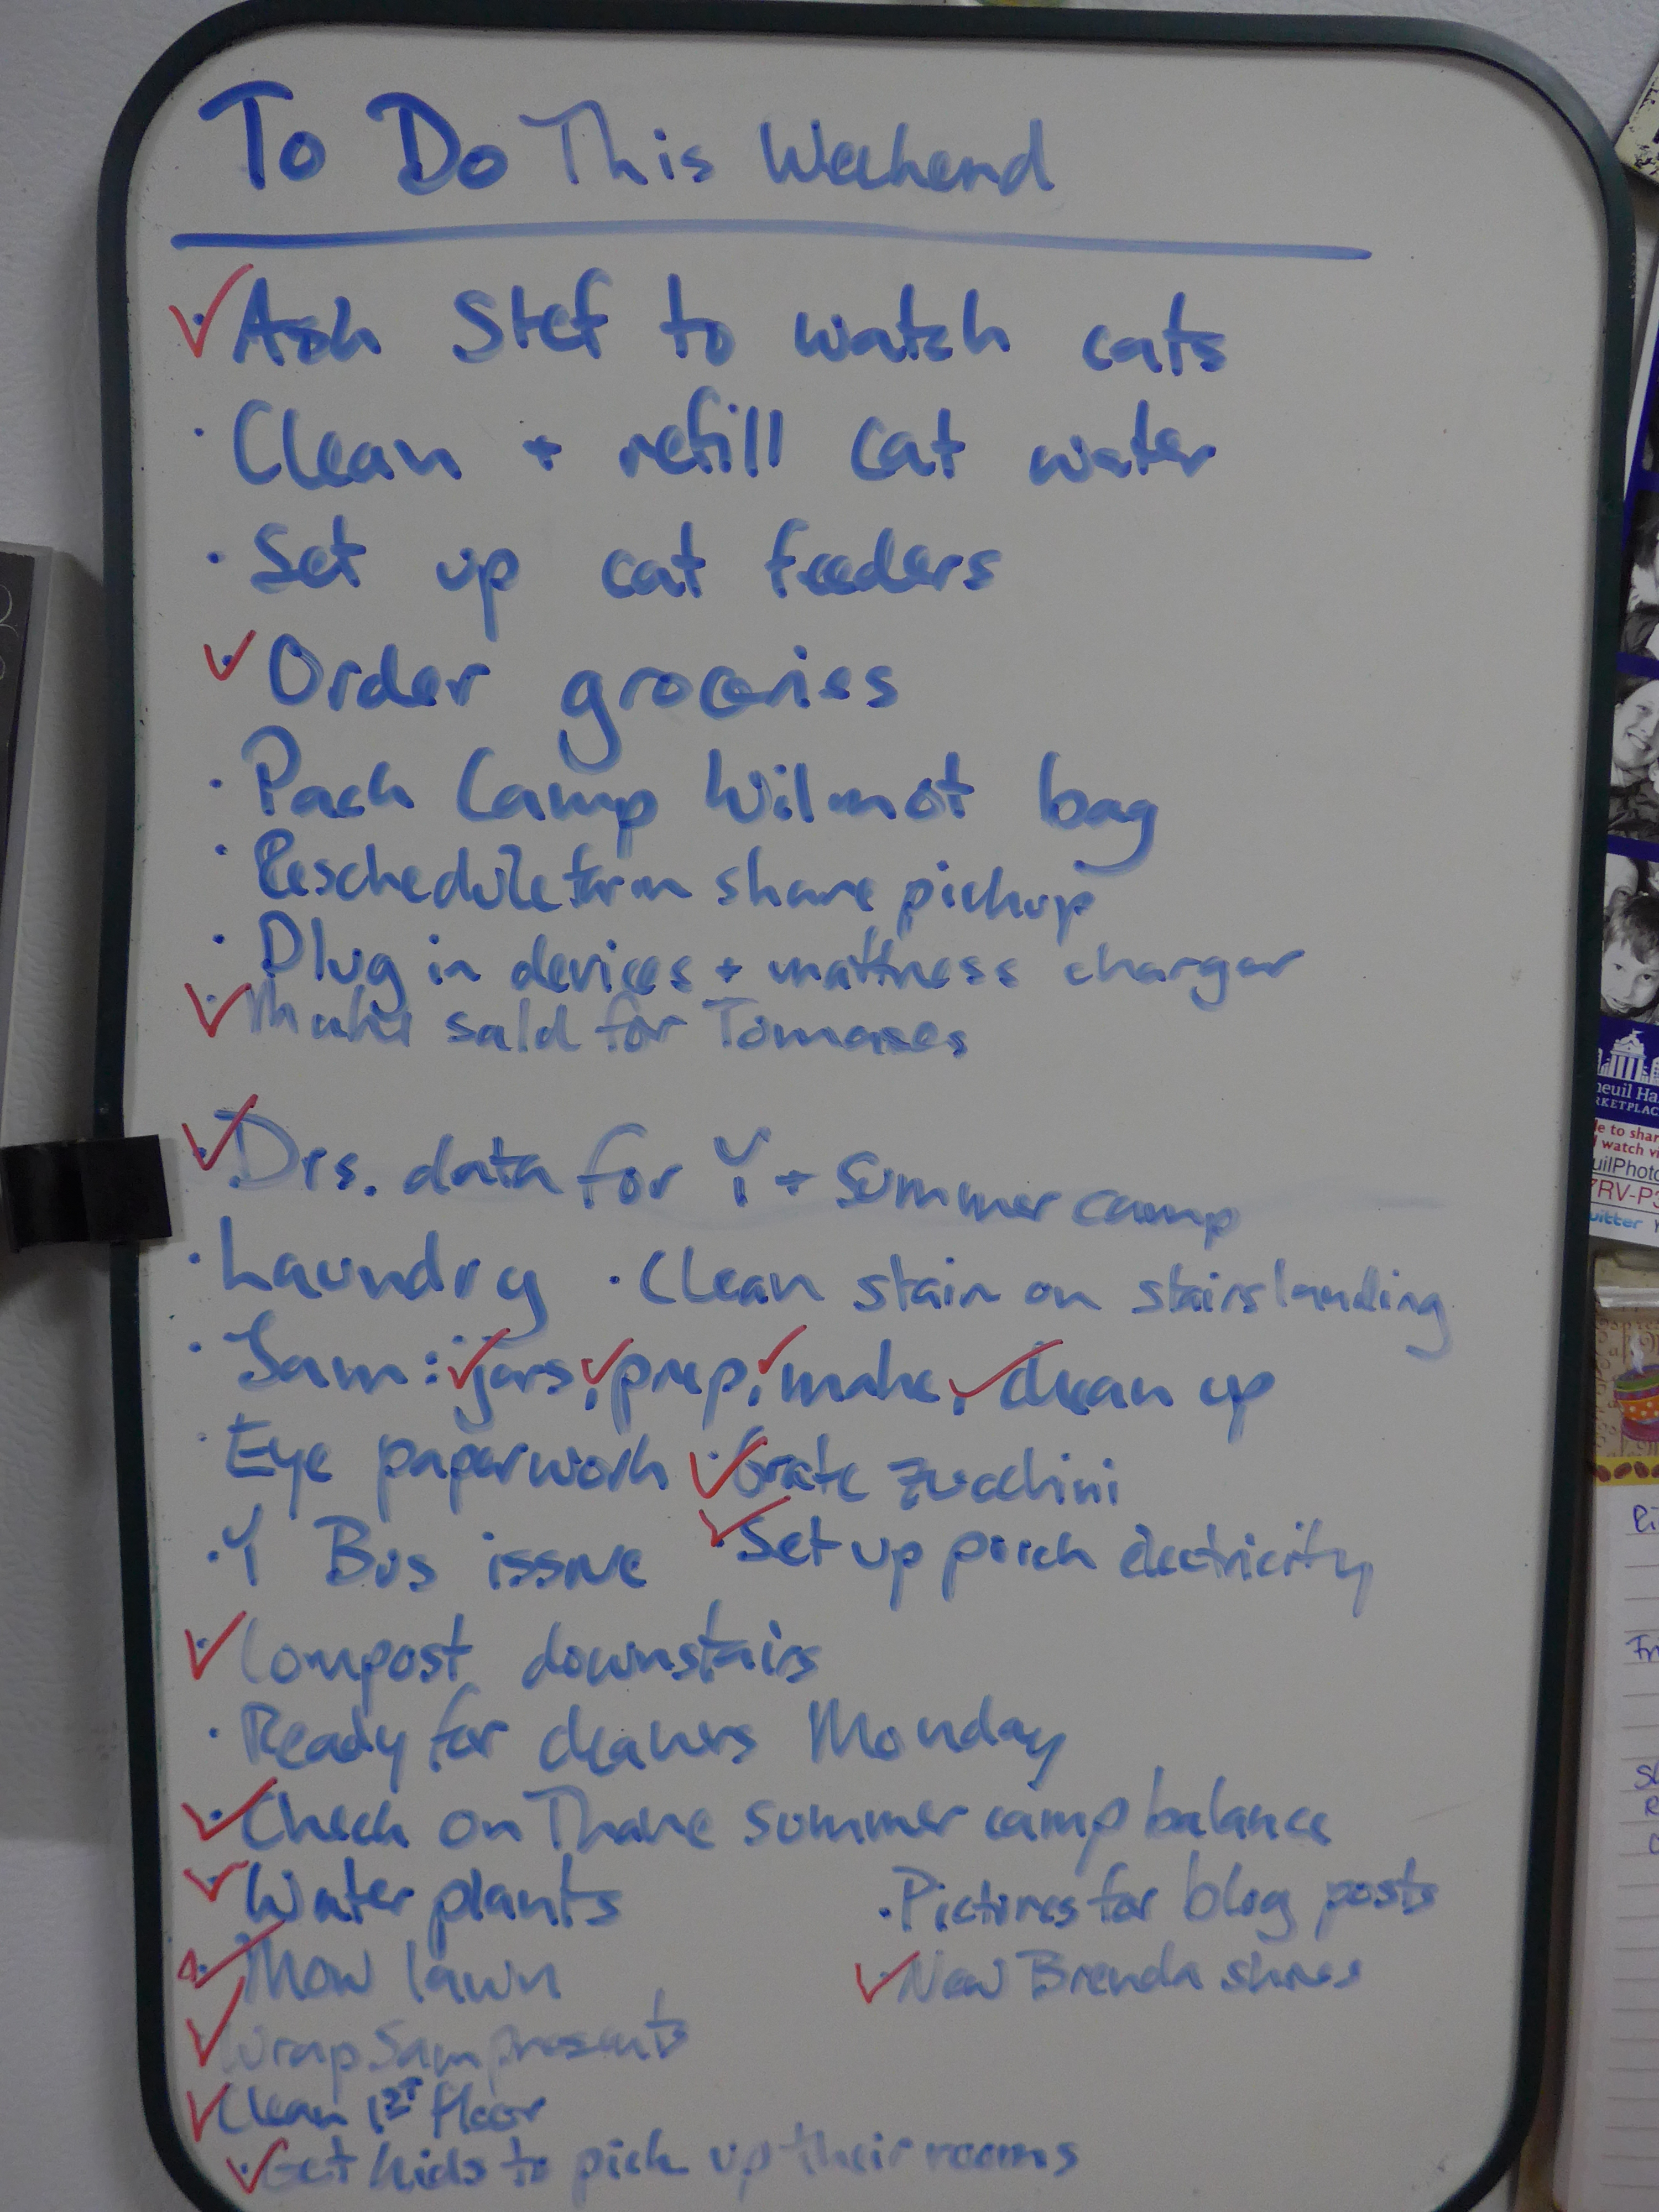 To Do This Weekend
✓ Ask Stef to watch cats
· Clean + refill cat water
· Set up cat feeders
✓ Order groceries
· Pack Camp Wilmot bag
· Reschedule farm share pickup
· Plug in devices + mattress charger
✓ Make sald for Tomases
✓ Drs. data for Y + Summer camp
· Laundry · Clean stain on stairs landing
· Jam: ✓ jars, ✓ prep, ✓ make, ✓ clean up
· Eye paperwork ✓ Grate zucchini
· Y Bus issue ✓ Set up porch electricity
✓ Compost downstairs
· Ready for cleaners Monday
✓ Check on Thane summer camp balance
✓ Water plants · Pictures for blog posts
✓ Mow lawn ✓ New Brenda shoes
✓ Wrap Sam presents
✓ Clean 1ST floor
✓ Get kids to pick up their rooms
neuil Ha
RKETPLAC
e to shar
watch vi
uilPhoto
7RV-P3
witter
Fr